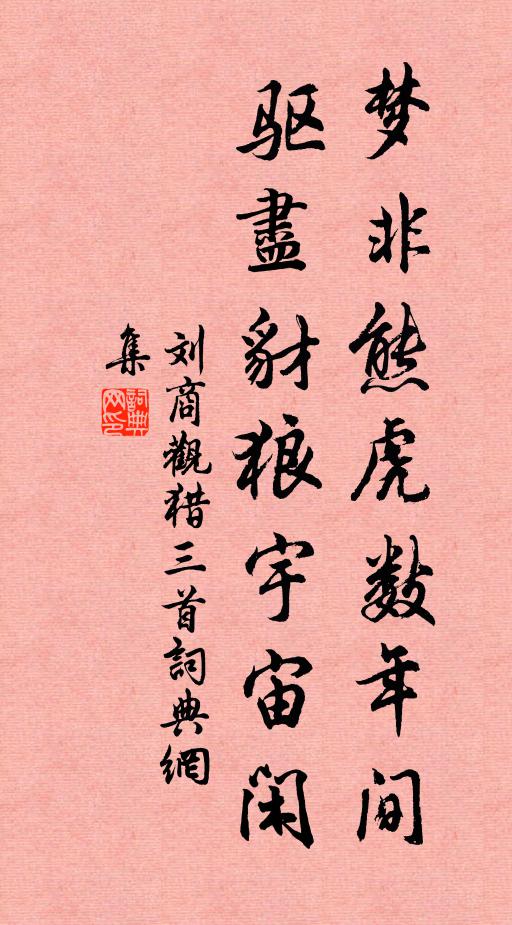 梦非熊虎数年间
驱盡豺狼宇宙闲
刘商觀猎三首詞典網
集
詞典
网印